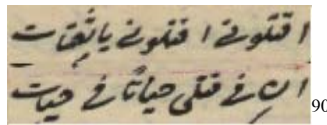 اقتلونی اقتلونی یا ثِقات
اِن فی قتلی حیاتًا فی حیات
90